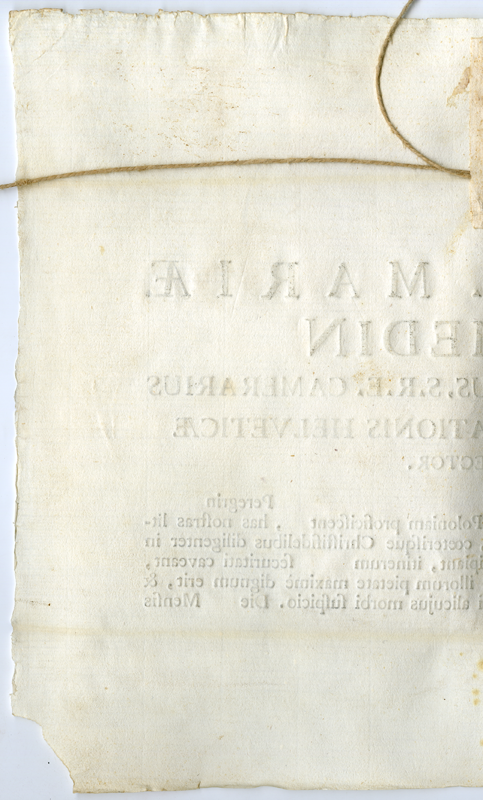 . MARIÆ.
MEDIN
US, S.R.E. CAMERARIUS
ATIONIS HELVETICÆ
ECTOR.
Peregrin
Poloniam proficiſcent , has noſtras lit-
, cœteriſque Chriſtifidelibus diligenter in
ipiant, itinerum ſecuritati caveant,
illorum pietate maximè dignum erit, &
i alicujus morbi ſuſpicio. Die Menſis